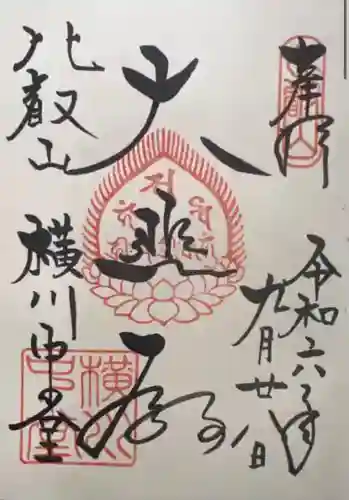 奉拝
令和六年
九月廿八日
大悲殿
比叡山
横川中堂